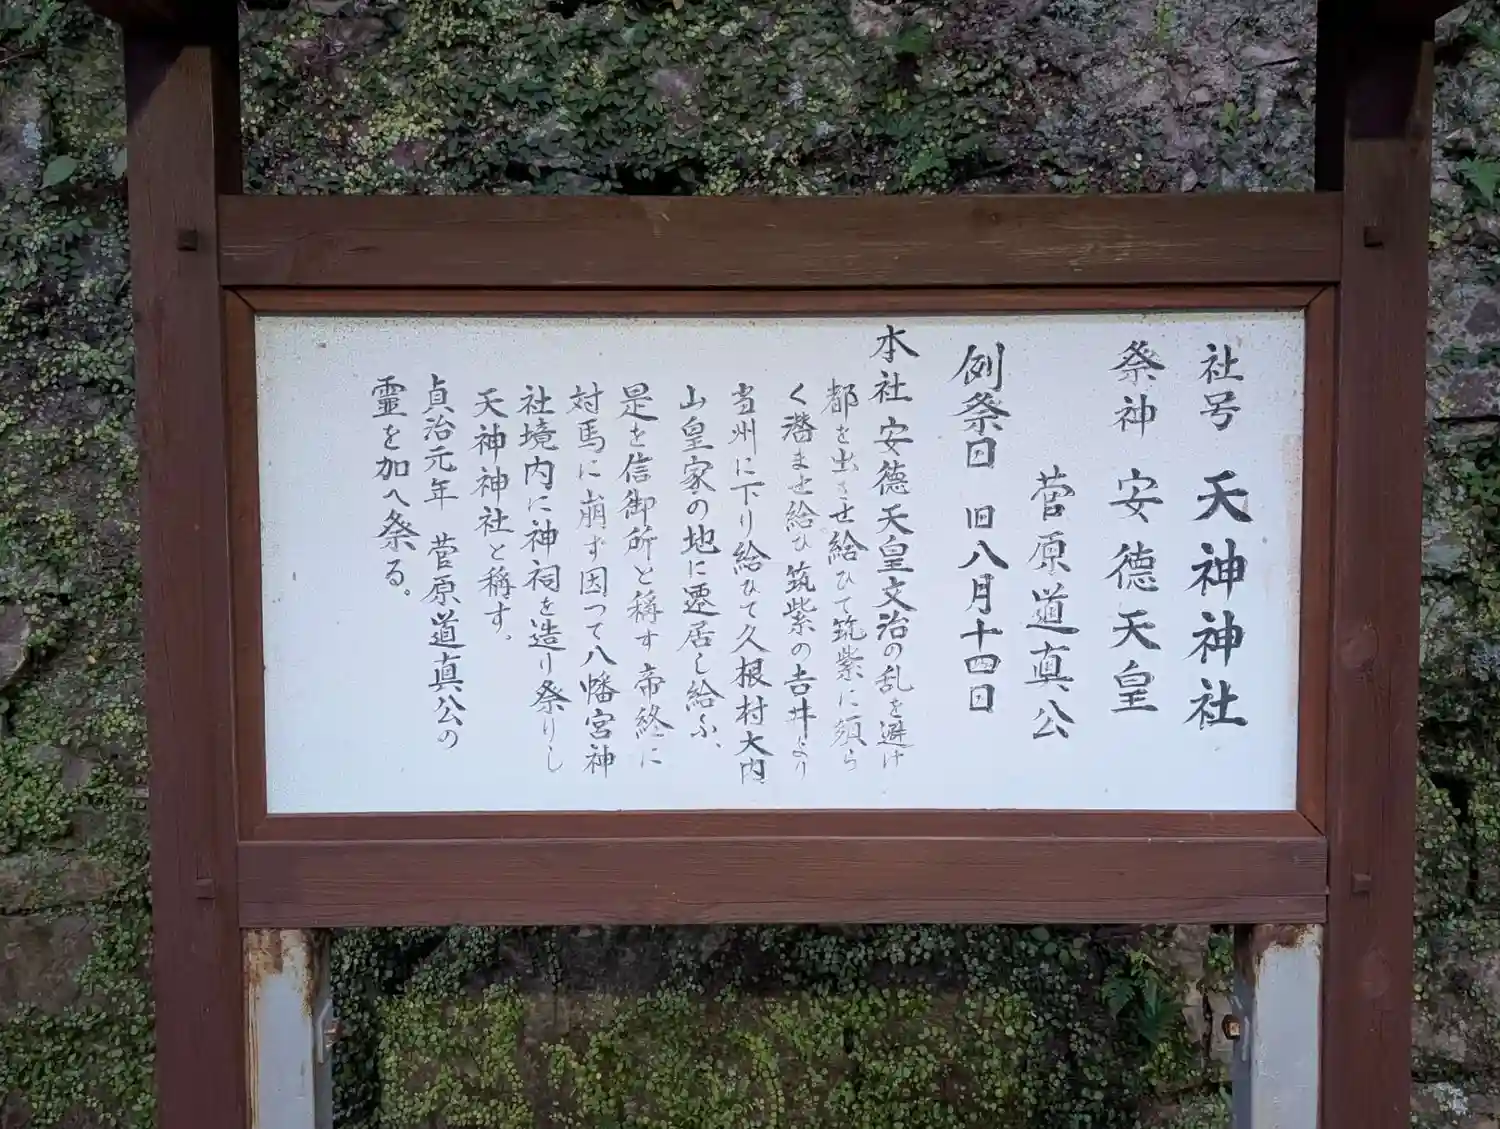 社号 天神神社
祭神 安徳天皇
菅原道真公
例祭日 旧八月十四日
本社 安德天皇文治の乱を避け
都を出させ給ひて筑紫に須ら
く潜ませ給ひ筑紫の吉井より
当州に下り給ひて久根村大内
山皇家の地に遷居し給ふ、
是を信御所と稱す 帝終に
対馬に崩ず因って八幡宮神
社境内に神祠を造り祭りし
天神神社と稱す。
貞治元年 菅原道真公の
霊を加へ祭る。